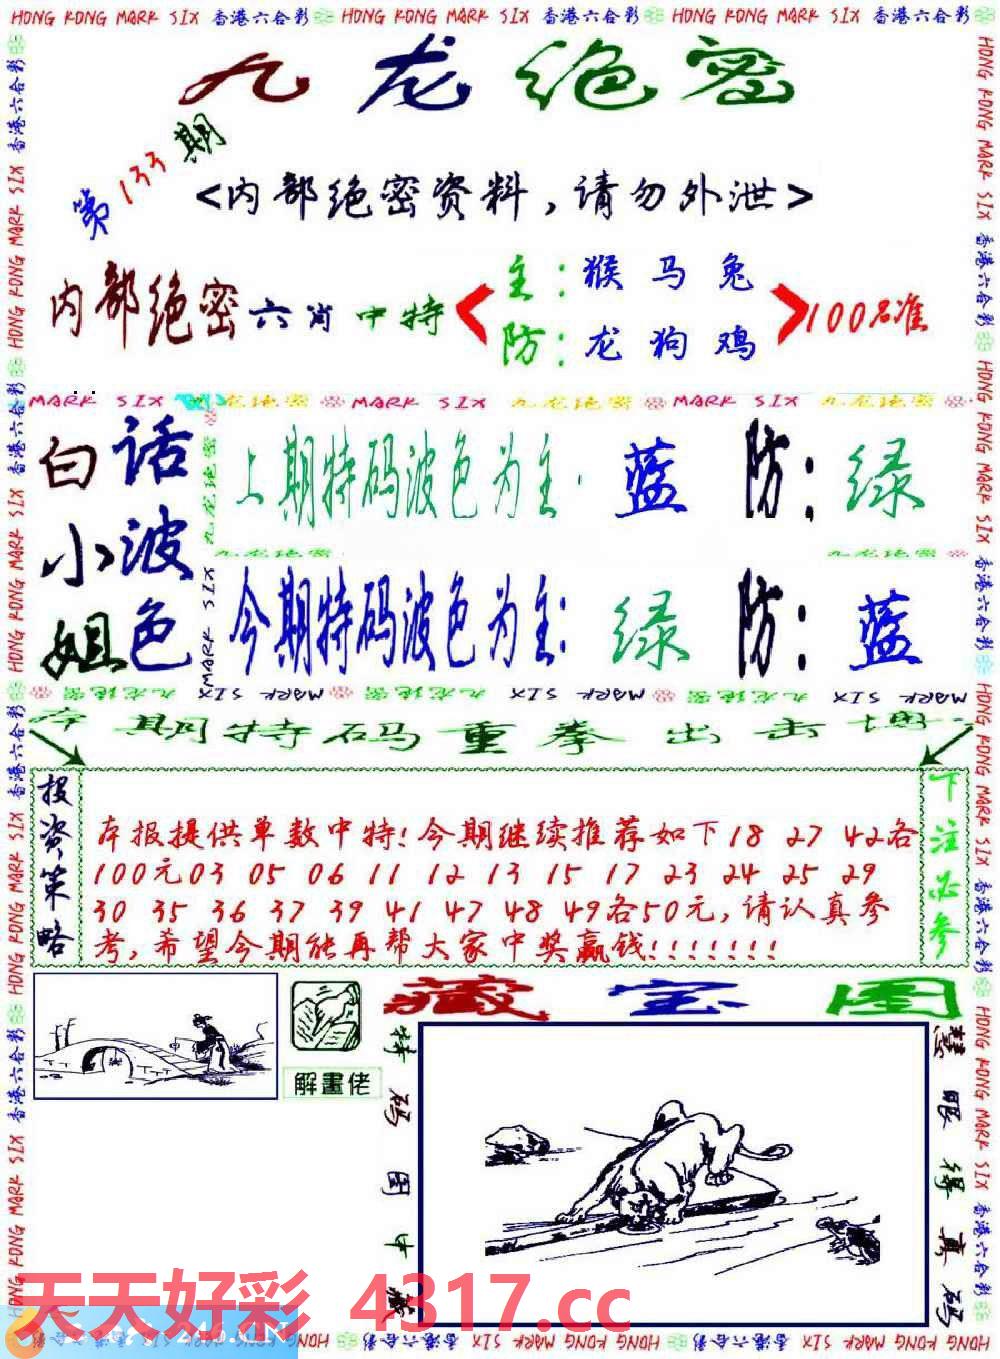 HONG KONG MARK SIX 香港六合彩 HONG KONG MARK SIX 香港六合彩 HONG KONG MARK SIX 香港六合彩
九龙绝密
第133期
<内部绝密资料,请勿外泄>
内部绝密六肖中特
主:猴马兔
防:龙狗鸡
100%准
MARK SIX 九龙绝密 MARK SIX 九龙绝密 MARK SIX 九龙绝密
白小姐
话波色
上期特码波色为主· 蓝 防:绿
今期特码波色为主: 绿 防:蓝
本期特码重拳出击
投资策略
本报提供单数中特!今期继续推荐如下18 27 42各
100元03 05 06 11 12 13 15 17 23 24 25 29
30 35 36 37 39 41 47 48 49各50元,请认真参
考,希望今期能再帮大家中奖赢钱!!!!!!!
下注必参
藏宝图
解畫佬
特码图中藏
慧眼得真码
天天好彩 4317.cc